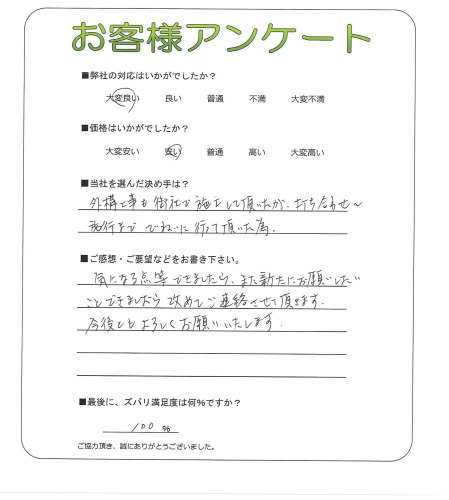 お客様アンケート
■弊社の対応はいかがでしたか?
大変良い 良い 普通 不満 大変不満
■価格はいかがでしたか?
大変安い 安い 普通 高い 大変高い
■当社を選んだ決め手は?
外構工事も御社で施工して頂いたが、打ち合わせ〜
施行まで ていねいに行って頂いた為。
■ご感想・ご要望などをお書き下さい。
気になる点等できましたら、また新たにお願いしたい
ことできましたら改めてご連絡させて頂きます。
今後ともよろしくお願いいたします.
■最後に、ズバリ満足度は何%ですか?
100 %
ご協力頂き、誠にありがとうございました。